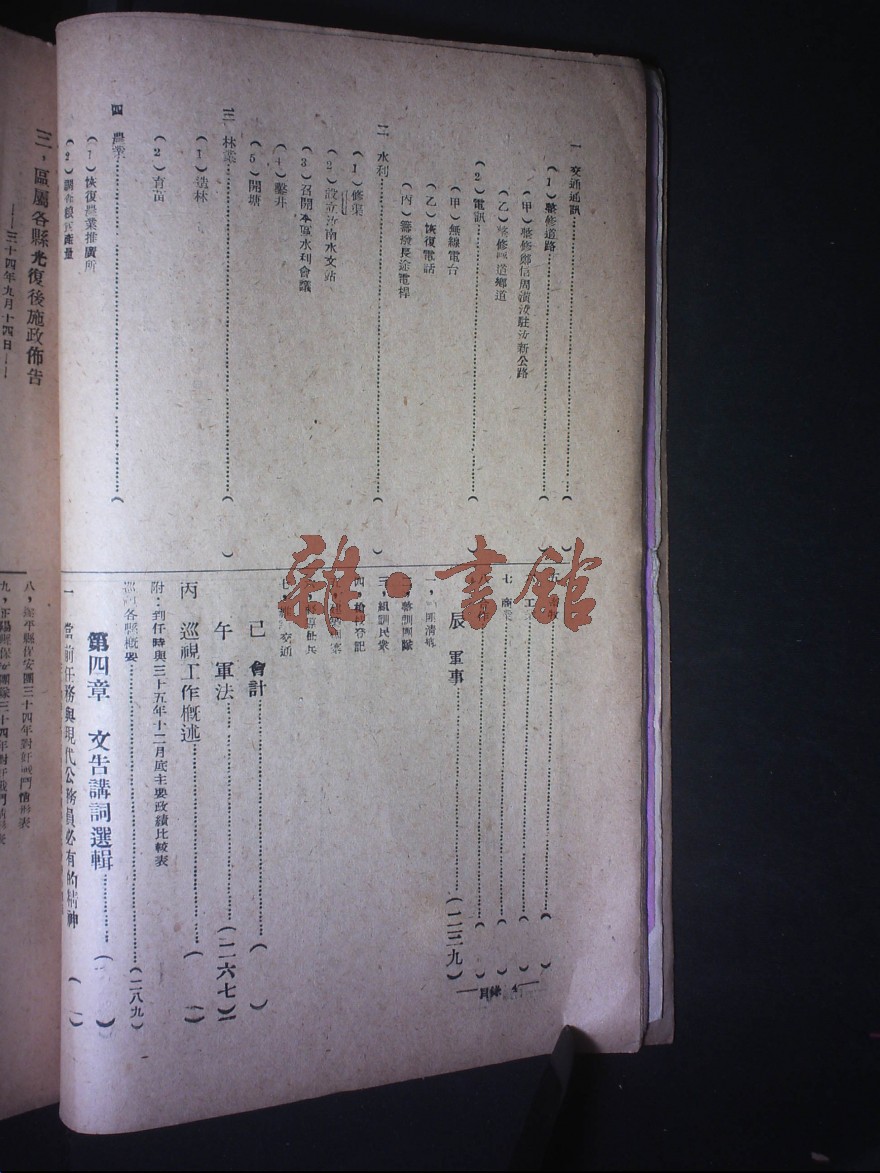 一 交通通訊……（ ）
（1）整修道路……（ ）
（甲）整修鄭信周潢汝駐汝新公路
（乙）整修 道鄉道
（2）電訊……（ ）
（甲）無線電台
（乙）恢復電話
（丙）籌撥長途電桿
二 水利……（ ）
（1）修渠
（2）設立汝南水文站
（3）召開本區水利會議
（4）鑿井
（5）開塘
三 林業……（ ）
（1）造林
（2）育苗
四 農業……（
（1）恢復農業推廣所
（2）調查糧 產量
七 商業……（ ）
辰 軍事……（二三九）
整訓團隊
三，組訓民衆
四，槍枝登記
交通
已 會計……（ ）
午 軍法……（二六七）
丙 巡視工作概述……（ ）
附：到任時與三十五年十二月底主要政績比較表
巡視各縣概要……（二八九）
第四章 文告講詞選輯……（ ）
一 當前任務與現代公務員必有的精神
目錄 4
三，區屬各縣光復後施政佈告
——三十四年九月十四日——
八，遂平縣保安團三十四年對奸戰鬥情形表
九，正陽縣保安團隊三十四年對奸戰鬥情形表
雜·書館